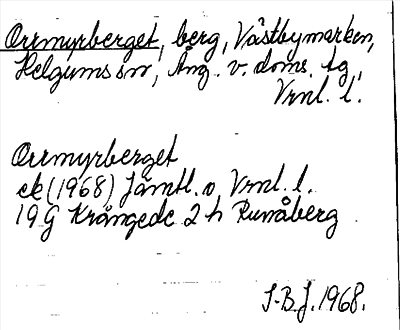 Orrmyrberget, berg, Västbymarken,
Helgums sn, Ång. v. doms. tg,
Vrnl. l.
Orrmyrberget
ek (1968) Jämtl. o Vrnl. l.
19 G Krångede 2 h Runåberg
S-B.J. 1968.